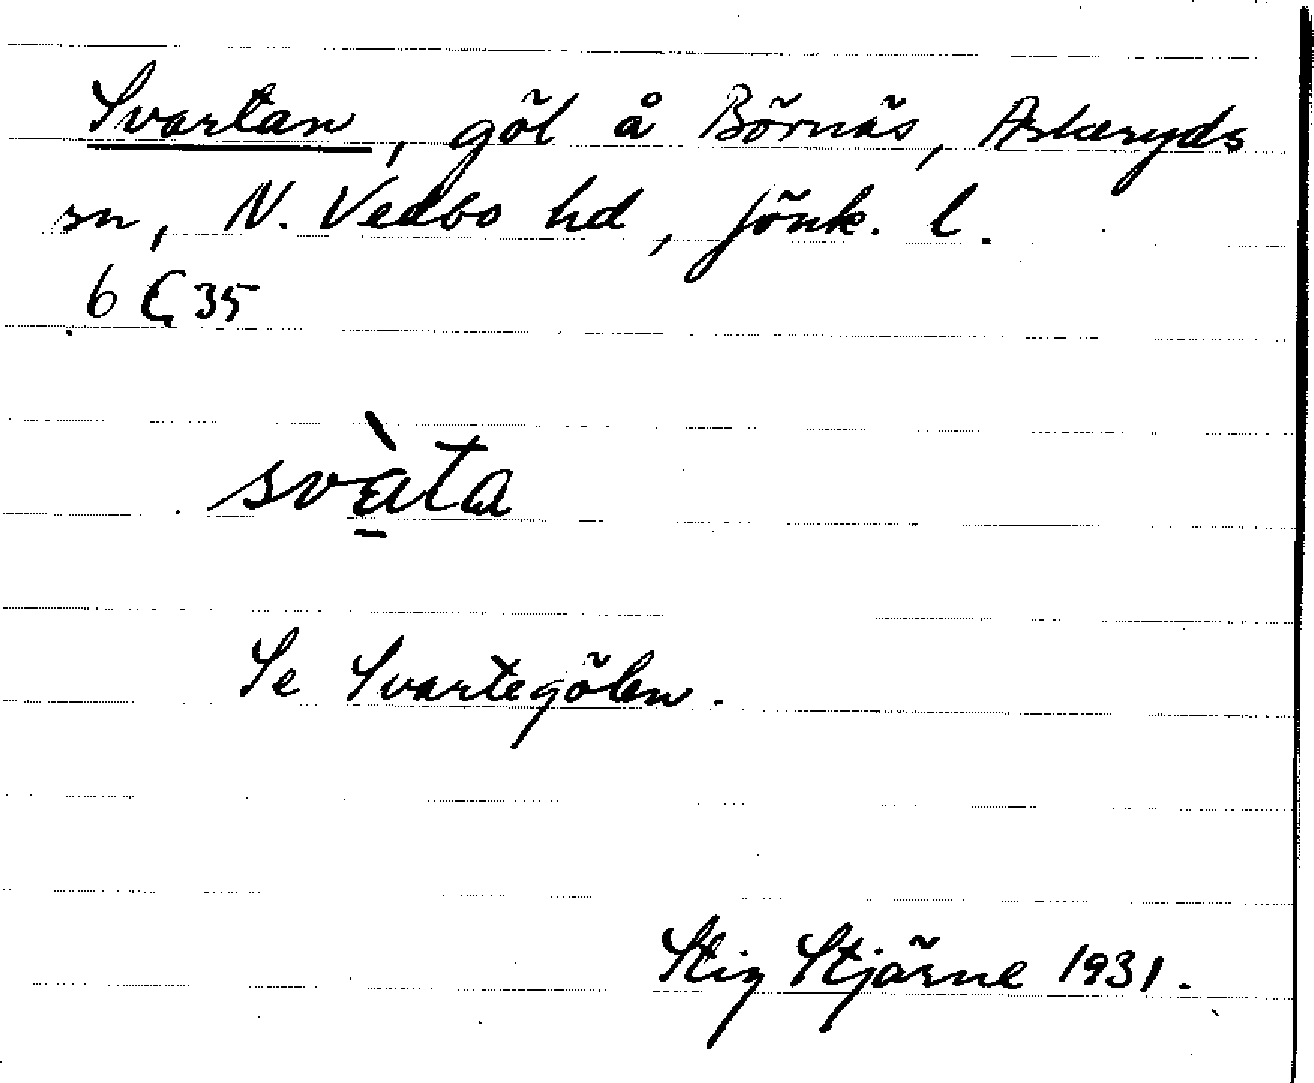 Svartan, göl å Börnäs, Askeryds
sn, N. Vedbo hd, Jönk. l.
6 G 35
svàta
Se Svartegölen.
Stig Stjärne 1931.